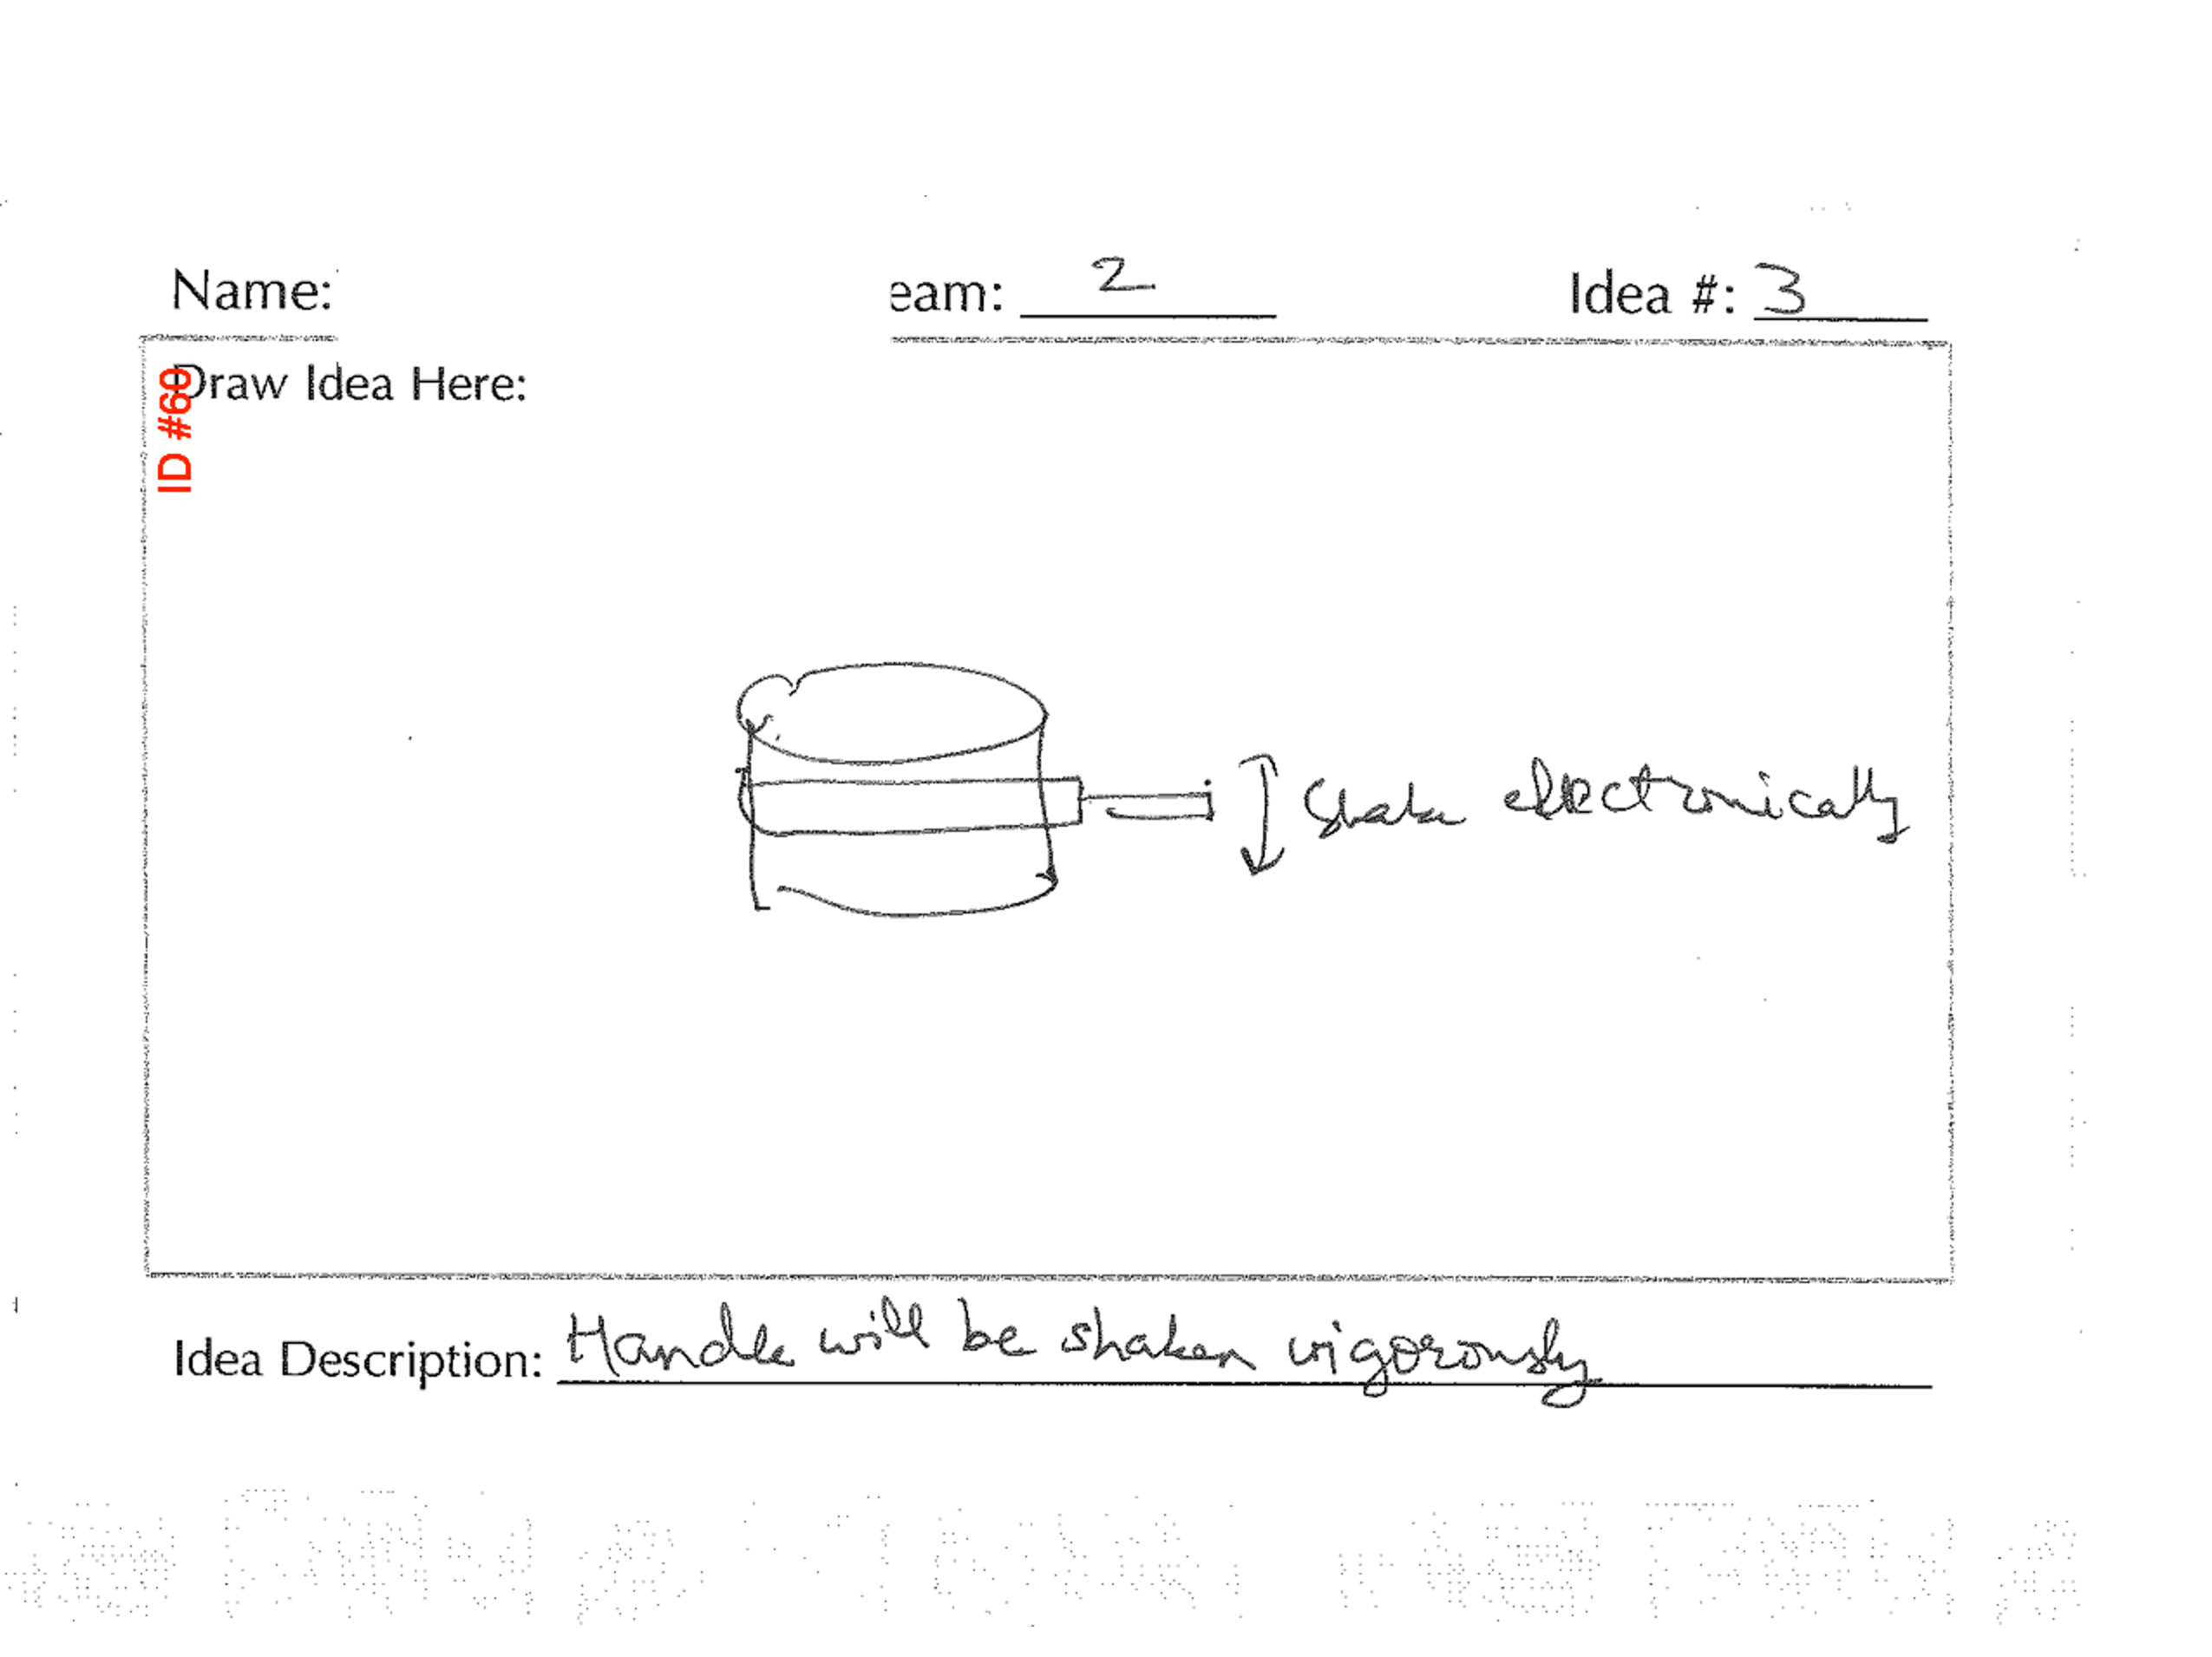 Name: eam: 2 Idea #: 3
Draw Idea Here:
ID #60
Shake electronically
Idea Description: Handle will be shaken vigorously